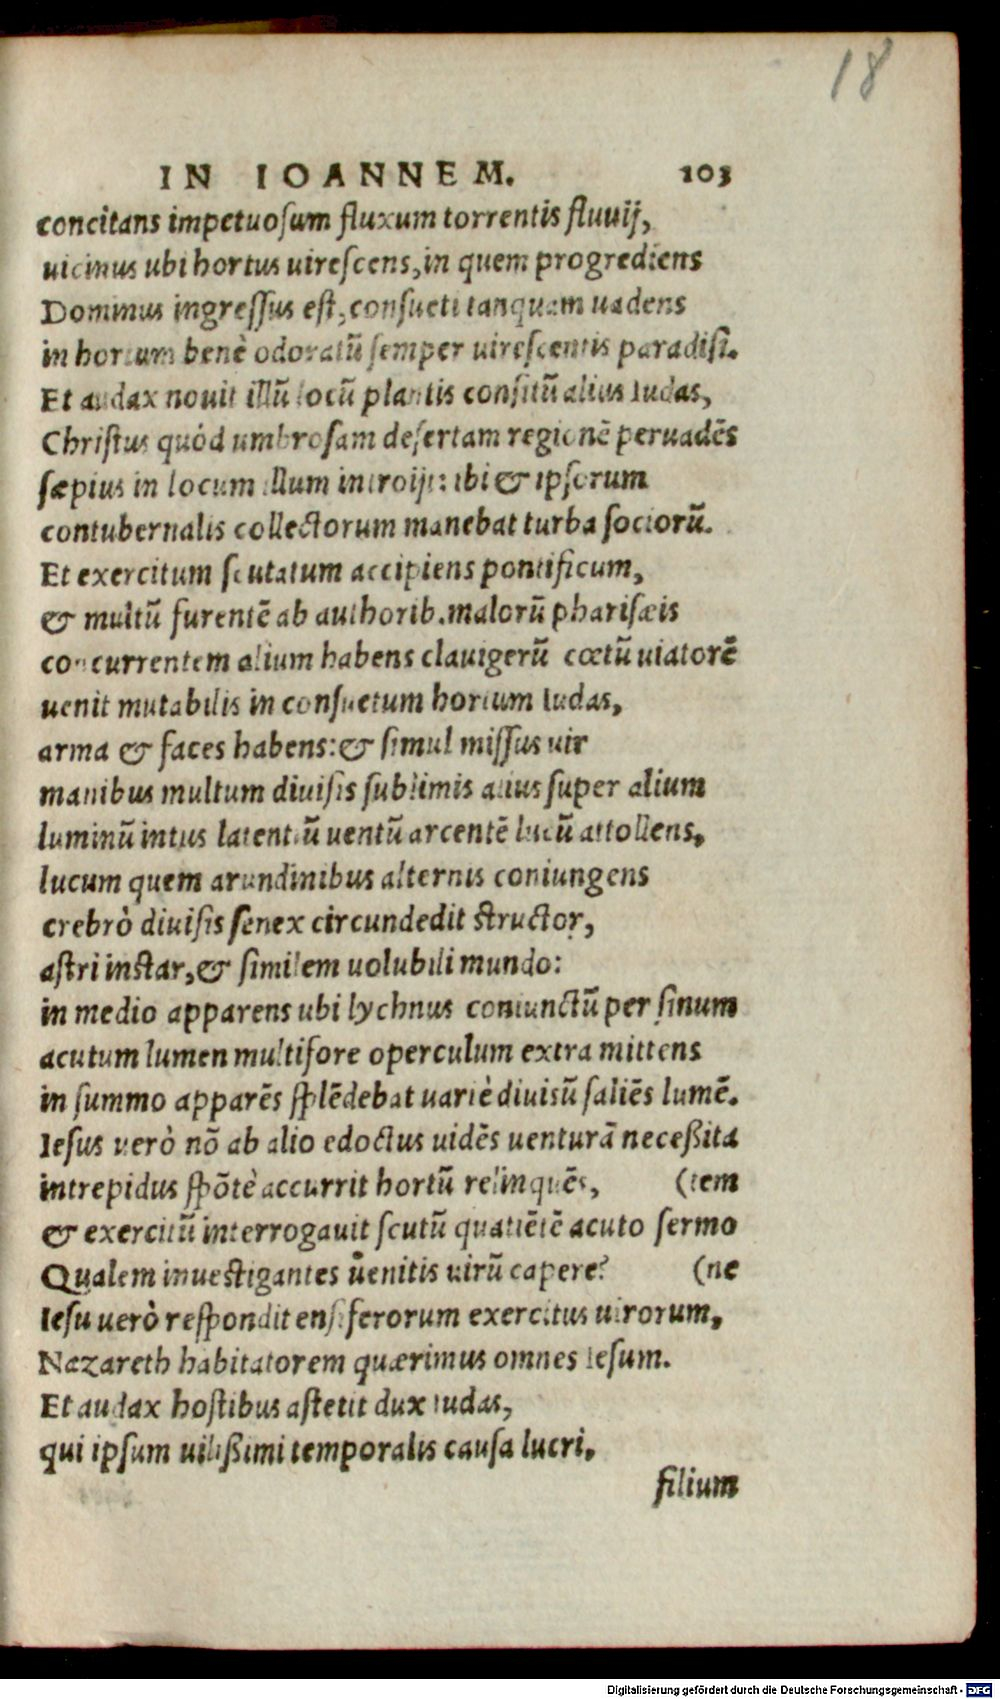 18
IN IOANNEM. 103
concitans impetuosum fluxum torrentis fluuij,
uicinus ubi hortus uirescens, in quem progrediens
Dominus ingressus est, consueti tanquam uadens
in hortum benè odoratũ semper uirescentis paradisi.
Et audax nouit illũ locũ plantis consitũ alius Iudas,
Christus quòd umbrosam desertam regionẽ peruadẽs
sæpius in locum illum introijt: ibi & ipsorum
contubernalis collectorum manebat turba sociorũ.
Et exercitum scutatum accipiens pontificum,
& multũ furentẽ ab authorib. malorũ pharisæis
concurrentem alium habens clauigerũ cœtũ uiatorẽ
uenit mutabilis in consuetum hortum Iudas,
arma & faces habens: & simul missus uir
manibus multum diuisis sublimis alius super alium
luminũ intus latentiũ uentũ arcentẽ lucũ attollens,
lucum quem arundinibus alternis coniungens
crebrò diuisis senex circundedit structor,
astri instar, & similem uolubili mundo:
in medio apparens ubi lychnus coniunctũ per sinum
acutum lumen multifore operculum extra mittens
in summo apparẽs splẽdebat uariè diuisũ saliẽs lumẽ.
Iesus uerò nõ ab alio edoctus uidẽs uenturã neceßita
intrepidus spõtè accurrit hortũ relinquẽs, (tem
& exercitũ interrogauit scutũ quatiẽtẽ acuto sermo
Qualem inuestigantes uenitis uirũ capere? (ne
Iesu uerò respondit ensiferorum exercitus uirorum,
Nazareth habitatorem quærimus omnes Iesum.
Et audax hostibus astetit dux Iudas,
qui ipsum uilißimi temporalis causa lucri,
filium
Digitalisierung gefördert durch die Deutsche Forschungsgemeinschaft - DFG